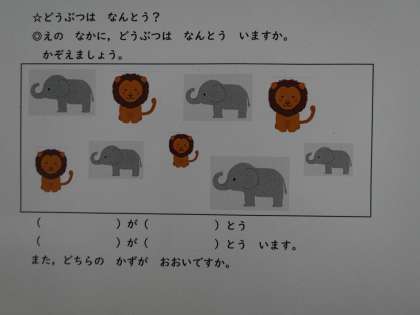 ☆どうぶつは　なんとう？
◎えの　なかに，どうぶつは　なんとう　いますか。
かぞえましょう。
（　　　　　　）が（　　　　　　）とう
（　　　　　　）が（　　　　　　）とう　います。
また，どちらの　かずが　おおいですか。